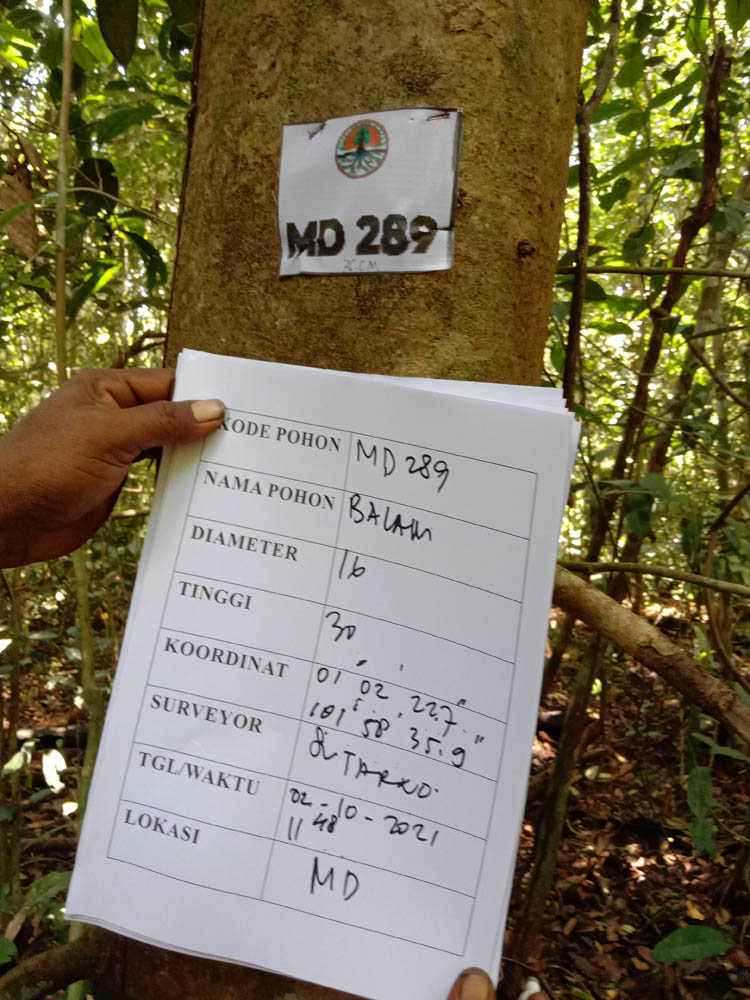 MD 289
KODE POHON MD 289
NAMA POHON BALAM
DIAMETER 16
TINGGI 30
KOORDINAT 01° 02' 22.7"
101° 58' 35.9"
SURVEYOR SUTARNO
TGL/WAKTU 02-10-2021
11 48
LOKASI MD